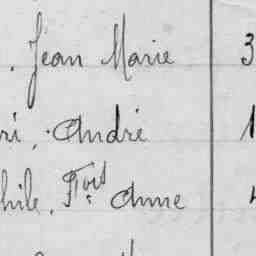 . Jean Marie 3
ri, André 1
hile, Fois Anne